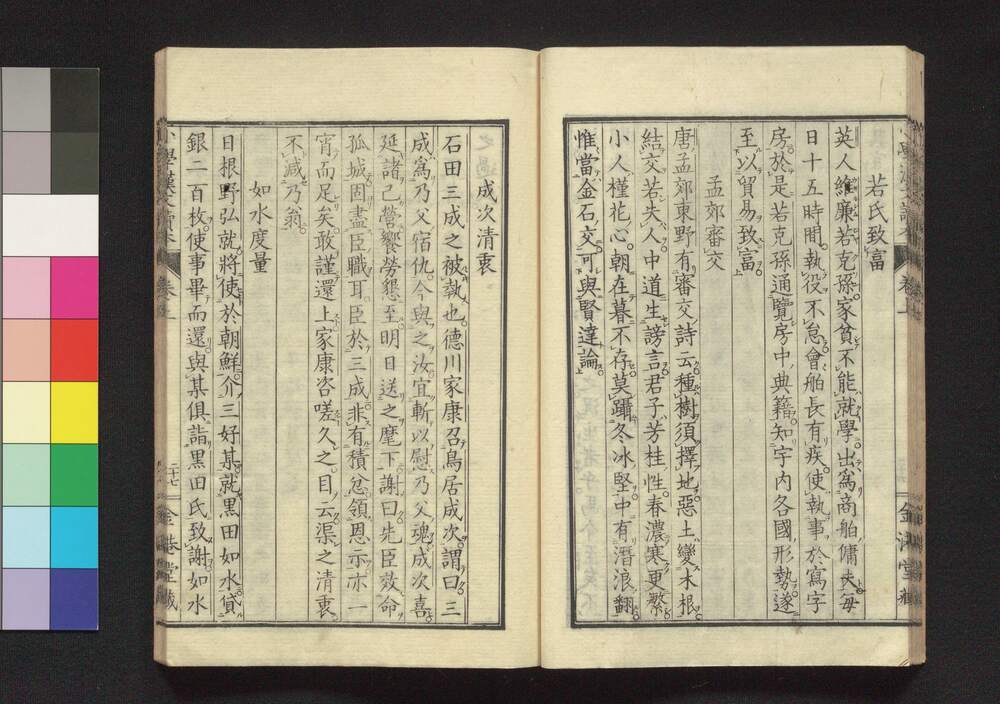 若氏致富
英人維廉若克孫家貧不能就學出爲商舶傭夫每
日十五時間執役不怠會舶長有疾使執事於寫字
房於是若克孫通覽房中典籍知宇内各國形勢遂
至以貿易致富
孟郊審交
唐孟郊東野有審交詩云種樹須擇地惡土變木根
結交若失人中道生謗言君子芳桂性春濃寒更繁
小人槿花心朝在暮不存莫躡冬冰堅中有潛浪翻
惟當金石交可與賢達論
成次清衷
石田三成之被執也德川家康召鳥居成次謂曰三
成爲乃父宿仇今與之汝宜斬以慰乃父魂成次喜
延諸己營饗勞懇至明日送之麾下謝曰先臣致命
孤城固盡臣職耳臣於三成非有積忿領恩示尒一
宵而足矣敢謹還上家康咨嗟久之目云渠之清衷
不減乃翁
如水度量
日根野弘就將使於朝鮮介三好某就黒田如水貸
銀二百枚使事畢而還與某俱詣黒田氏致謝如水
小學漢文讀本
卷上
二十七
金港堂藏